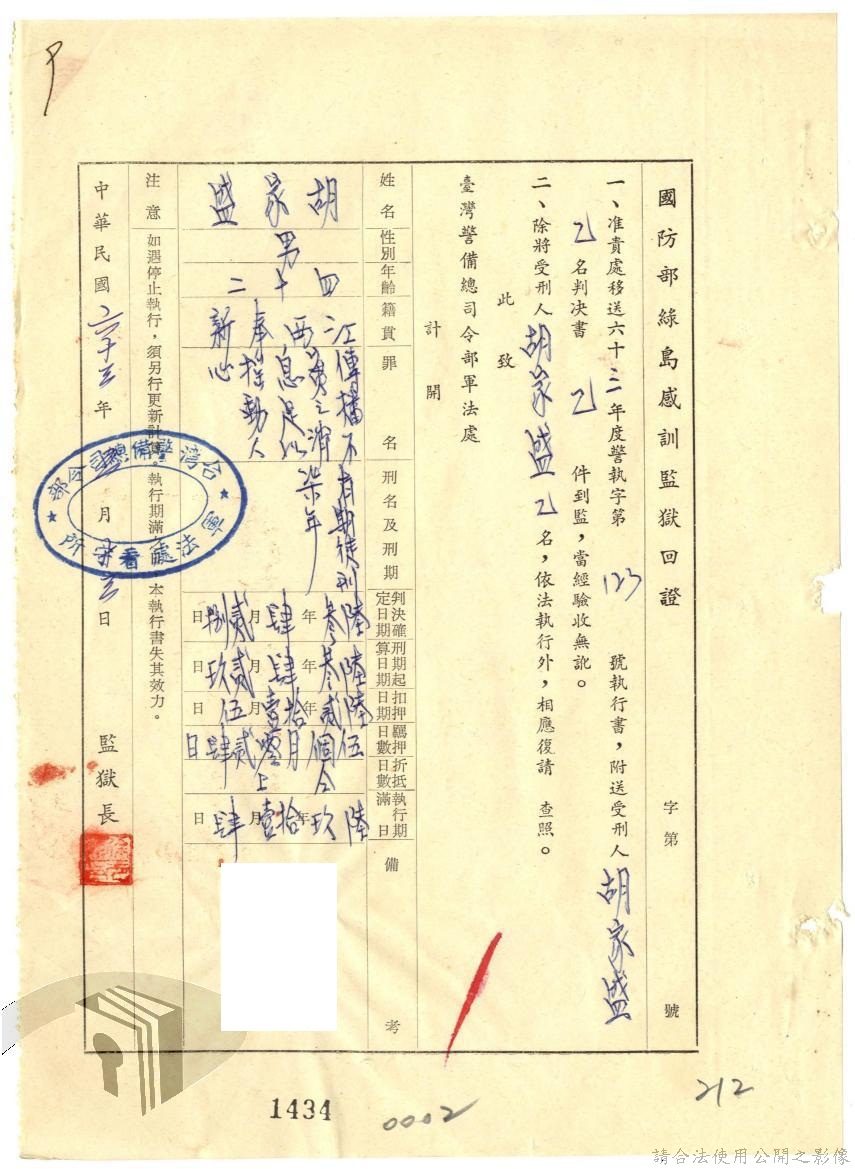 國防部綠島感訓監獄回證 字第 號
一、准貴處移送六十三年度警執字第 123 號執行書，附送受刑人胡家盛
乙名判決書 乙 件到監，當經驗收無訛。
二、除將受刑人胡家盛乙名，依法執行外，相應復請 查照。
此致
臺灣警備總司令部軍法處
計開
姓名 胡家盛
性別 男
年齡 四十二
籍貫 江西奉新
罪名 傳播不實之消息足以搖動人心
刑名及刑期 有期徒刑柒年
判決確定日期 陸叁年肆月貳捌日
刑期起算日期 陸叁年肆月貳玖日
扣押日期 陸貳年拾壹月伍日
羈押日數 伍個月零貳肆日
折抵日數 仝上
執行期滿日 陸玖年拾壹月肆日
備考
注意 如遇停止執行，須另行更新計算。執行期滿 本執行書失其效力。
中華民國六十三年 月 日 監獄長
台灣警備總司令部
軍法處看守所
1434
0002
212
請合法使用公開之影像